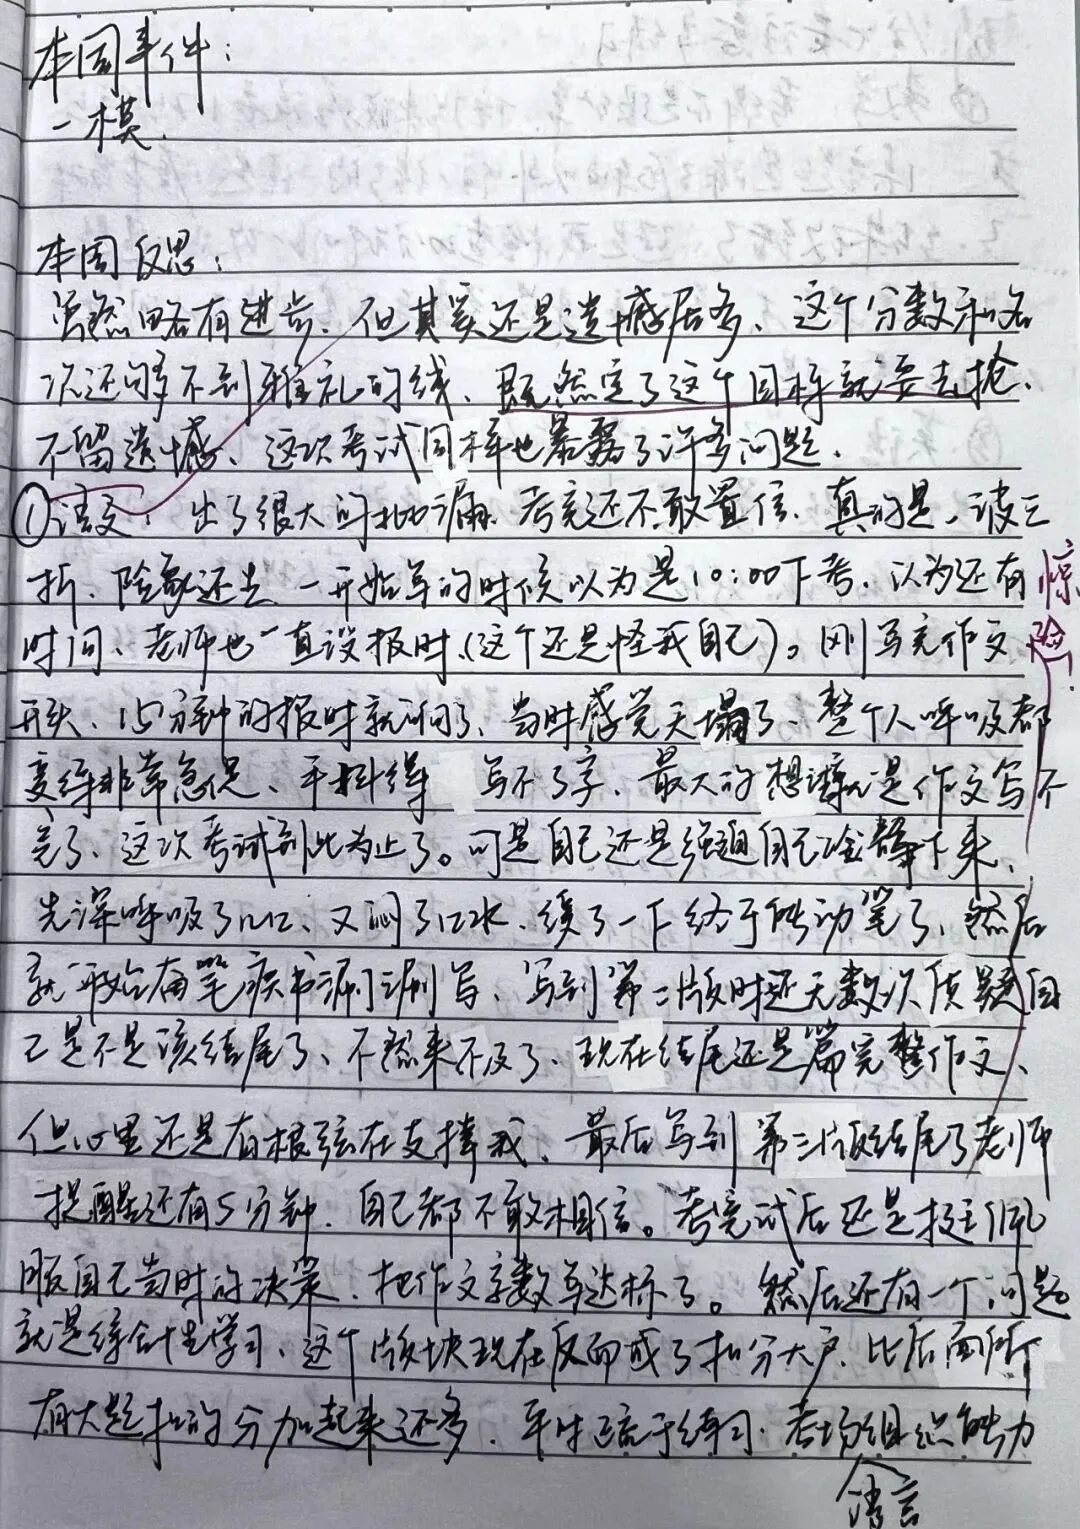 本周事件：
一模.
本周反思：
虽然略有进步、但其实还是遗憾居多、这个分数和名
次还够不到雅礼的线、既然定了这个目标就要去抢、
不留遗憾、这次考试同样也暴露了许多问题.
①语文：出了很大的纰漏、考完还不敢置信、真的是一波三
折、险象还生 一开始写的时候以为是10:00下考、认为还有
惊险!
时间、老师也一直没报时(这个还是怪我自己)。刚写完作文
开头、15分钟的报时就响了、当时感觉天塌了、整个人呼吸都
变得非常急促、手抖得 写不了字、最大的想法就是作文写不
完了、这次考试到此为止了。可是自己还是强迫自己冷静下来、
先深呼吸了几口、又闷了口水、缓了一下终于能动笔了、然后
就开始奋笔疾书唰唰写、写到第二版时还无数次质疑自
己是不是该结尾了、不然来不及了、现在结尾还是篇完整作文、
但心里还是有根弦在支撑我、最后写到第三版结尾了老师
提醒还有5分钟、自己都不敢相信。考完试后还是挺佩
服自己当时的决策、把作文字数写达标了。然后还有一个问题
就是综合性学习、这个版块现在反而成了扣分大户、比后面所
有大题扣的分加起来还多、平时疏于练习、考场组织能力
语言